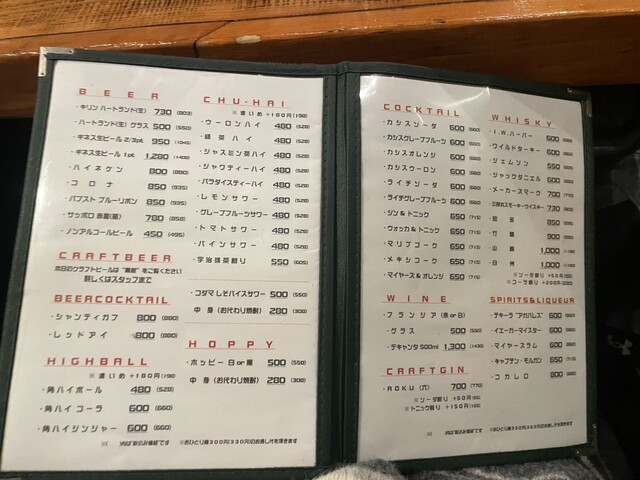 BEER
・キリン ハートランド(生) 730 (803)
・ハートランド(生) グラス 500 (550)
・ギネス生ビール 2/3pt 950 (1045)
・ギネス生ビール 1pt 1,280 (1408)
・ハイネケン 800 (880)
・コロナ 850 (935)
・パブスト ブルーリボン 850 (935)
・サッポロ 赤星(瓶) 780 (858)
・ノンアルコールビール 450 (495)
CRAFTBEER
本日のクラフトビールは "黒板" をご覧ください
詳しくはスタッフまで
BEERCOCKTAIL
・シャンディガフ 800 (880)
・レッドアイ 800 (880)
HIGHBALL
※ 濃いめ +180円(198)
・角ハイボール 480 (528)
・角ハイコーラ 600 (660)
・角ハイジンジャー 600 (660)
CHU-HAI
※ 濃いめ +180円(198)
・ウーロンハイ 480 (528)
・緑茶ハイ 480 (528)
・ジャスミン茶ハイ 480 (528)
・ジャワティーハイ 480 (528)
・パラダイスティーハイ 480 (528)
・レモンサワー 480 (528)
・グレープフルーツサワー 480 (528)
・トマトサワー 480 (528)
・パインサワー 480 (528)
・宇治抹茶割り 550 (605)
・コダマ しそバイスサワー 500 (550)
中身 (お代わり焼酎) 280 (308)
HOPPY
・ホッピー 白or黒 500 (550)
中身 (お代わり焼酎) 280 (308)
※( )内は「税込み価格」です ※おひとり様300円(330円)のお通し代を頂きます
COCKTAIL
・カシスソーダ 600 (660)
・カシスグレープフルーツ 600 (660)
・カシスオレンジ 600 (660)
・カシスウーロン 600 (660)
・ライチソーダ 600 (660)
・ライチグレープフルーツ 600 (660)
・ジン & トニック 650 (715)
・ウォッカ & トニック 650 (715)
・マリブコーク 650 (715)
・メキシコーク 650 (715)
・マイヤーズ & オレンジ 650 (715)
WINE
・フランジア (赤 or 白)
・グラス 500 (550)
・デキャンタ 500ml 1,300 (1430)
CRAFTGIN
・ROKU (六) 700 (770)
※ ソーダ割り +50円(55)
※ トニック割り +150円(165)
WHISKY
・I.W.ハーパー 600 (660)
・ワイルドターキー 600 (660)
・ジェムソン 550 (605)
・ジャックダニエル 600 (660)
・メーカースマーク 700 (770)
730 (803)
850 (935)
・竹鶴 900 (990)
・山崎 1,000 (1100)
・白州 1,000 (1100)
※ ソーダ割り +50円(55)
※ コーラ割り +200円(220)
SPIRITS&LIQUEUR
・テキーラ "アガバレス" 600 (660)
・イエーガーマイスター 600 (660)
・マイヤーズラム 600 (660)
・キャプテン・モルガン 650 (715)
・コカレロ 800 (880)
※( )内は「税込み価格」です ※おひとり様300円(330円)のお通し代を頂きます